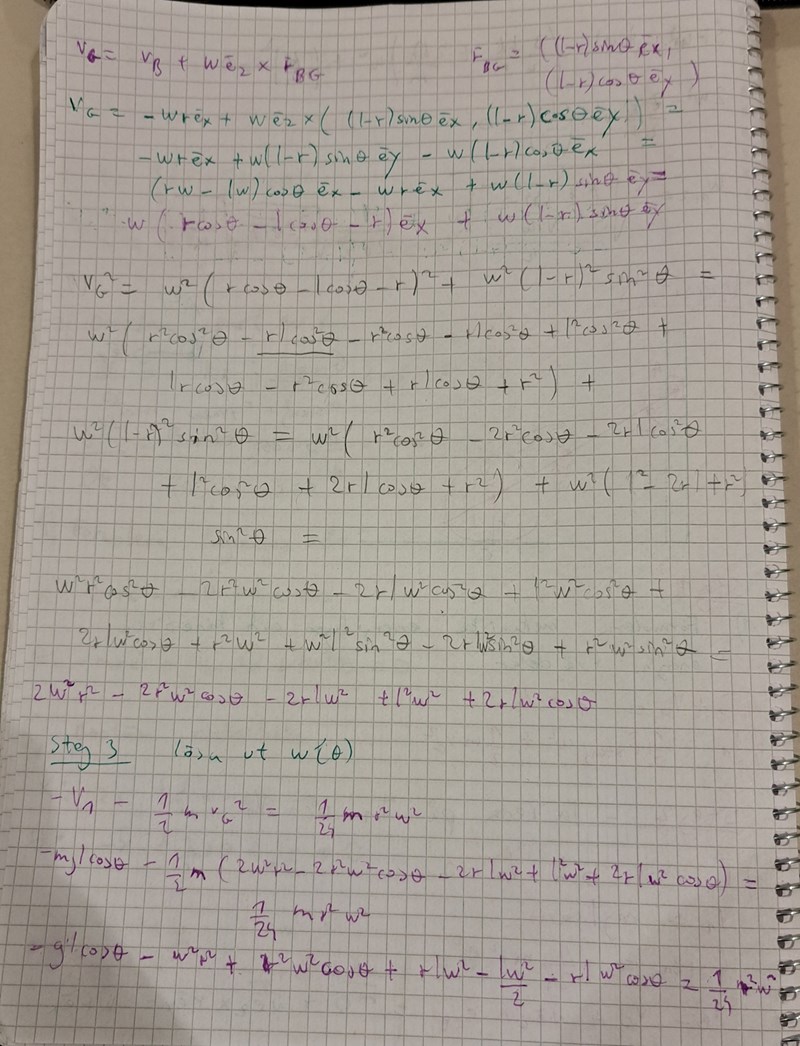 v_G = v_B + w ē_z × r_BG     r_BG = ((l-r)sinθ ēx,
(l-r)cosθ ēy)
v_G = -wr ēx + w ē_z × ((l-r)sinθ ēx, (l-r)cosθ ēy) =
-wr ēx + w(l-r) sinθ ēy - w(l-r)cosθ ēx =
(rw - lw) cosθ ēx - wr ēx + w(l-r) sinθ ēy =
w( rcosθ - lcosθ - r) ēx + w(l-r) sinθ ēy
v_G² = w²( r cosθ - l cosθ - r)² + w²(l-r)² sin²θ =
w²( r²cos²θ - rl cos²θ - r²cosθ - rl cos²θ + l²cos²θ +
lr cosθ - r²cosθ + rl cosθ + r²) +
w²(l-r)² sin²θ = w²( r²cos²θ - 2r²cosθ - 2rl cos²θ
+ l²cos²θ + 2rl cosθ + r²) + w²( l² - 2rl + r²)
sin²θ =
w²r²cos²θ - 2r²w²cosθ - 2rl w²cos²θ + l²w²cos²θ +
2rlw²cosθ + r²w² + w²l²sin²θ - 2rlw²sin²θ + r²w²sin²θ =
2w²r² - 2r²w²cosθ - 2rlw² + l²w² + 2rlw²cosθ
Steg 3   lösa ut w(θ)
-V₁ - 1/2 m v_G² = 1/24 m r²w²
-mgl cosθ - 1/2 m (2w²r² - 2r²w²cosθ - 2rlw² + l²w² + 2rlw²cosθ) =
1/24 m r²w²
-gl cosθ - w²r² + r²w²cosθ + rlw² - lw²/2 - rlw²cosθ = 1/24 r²w²